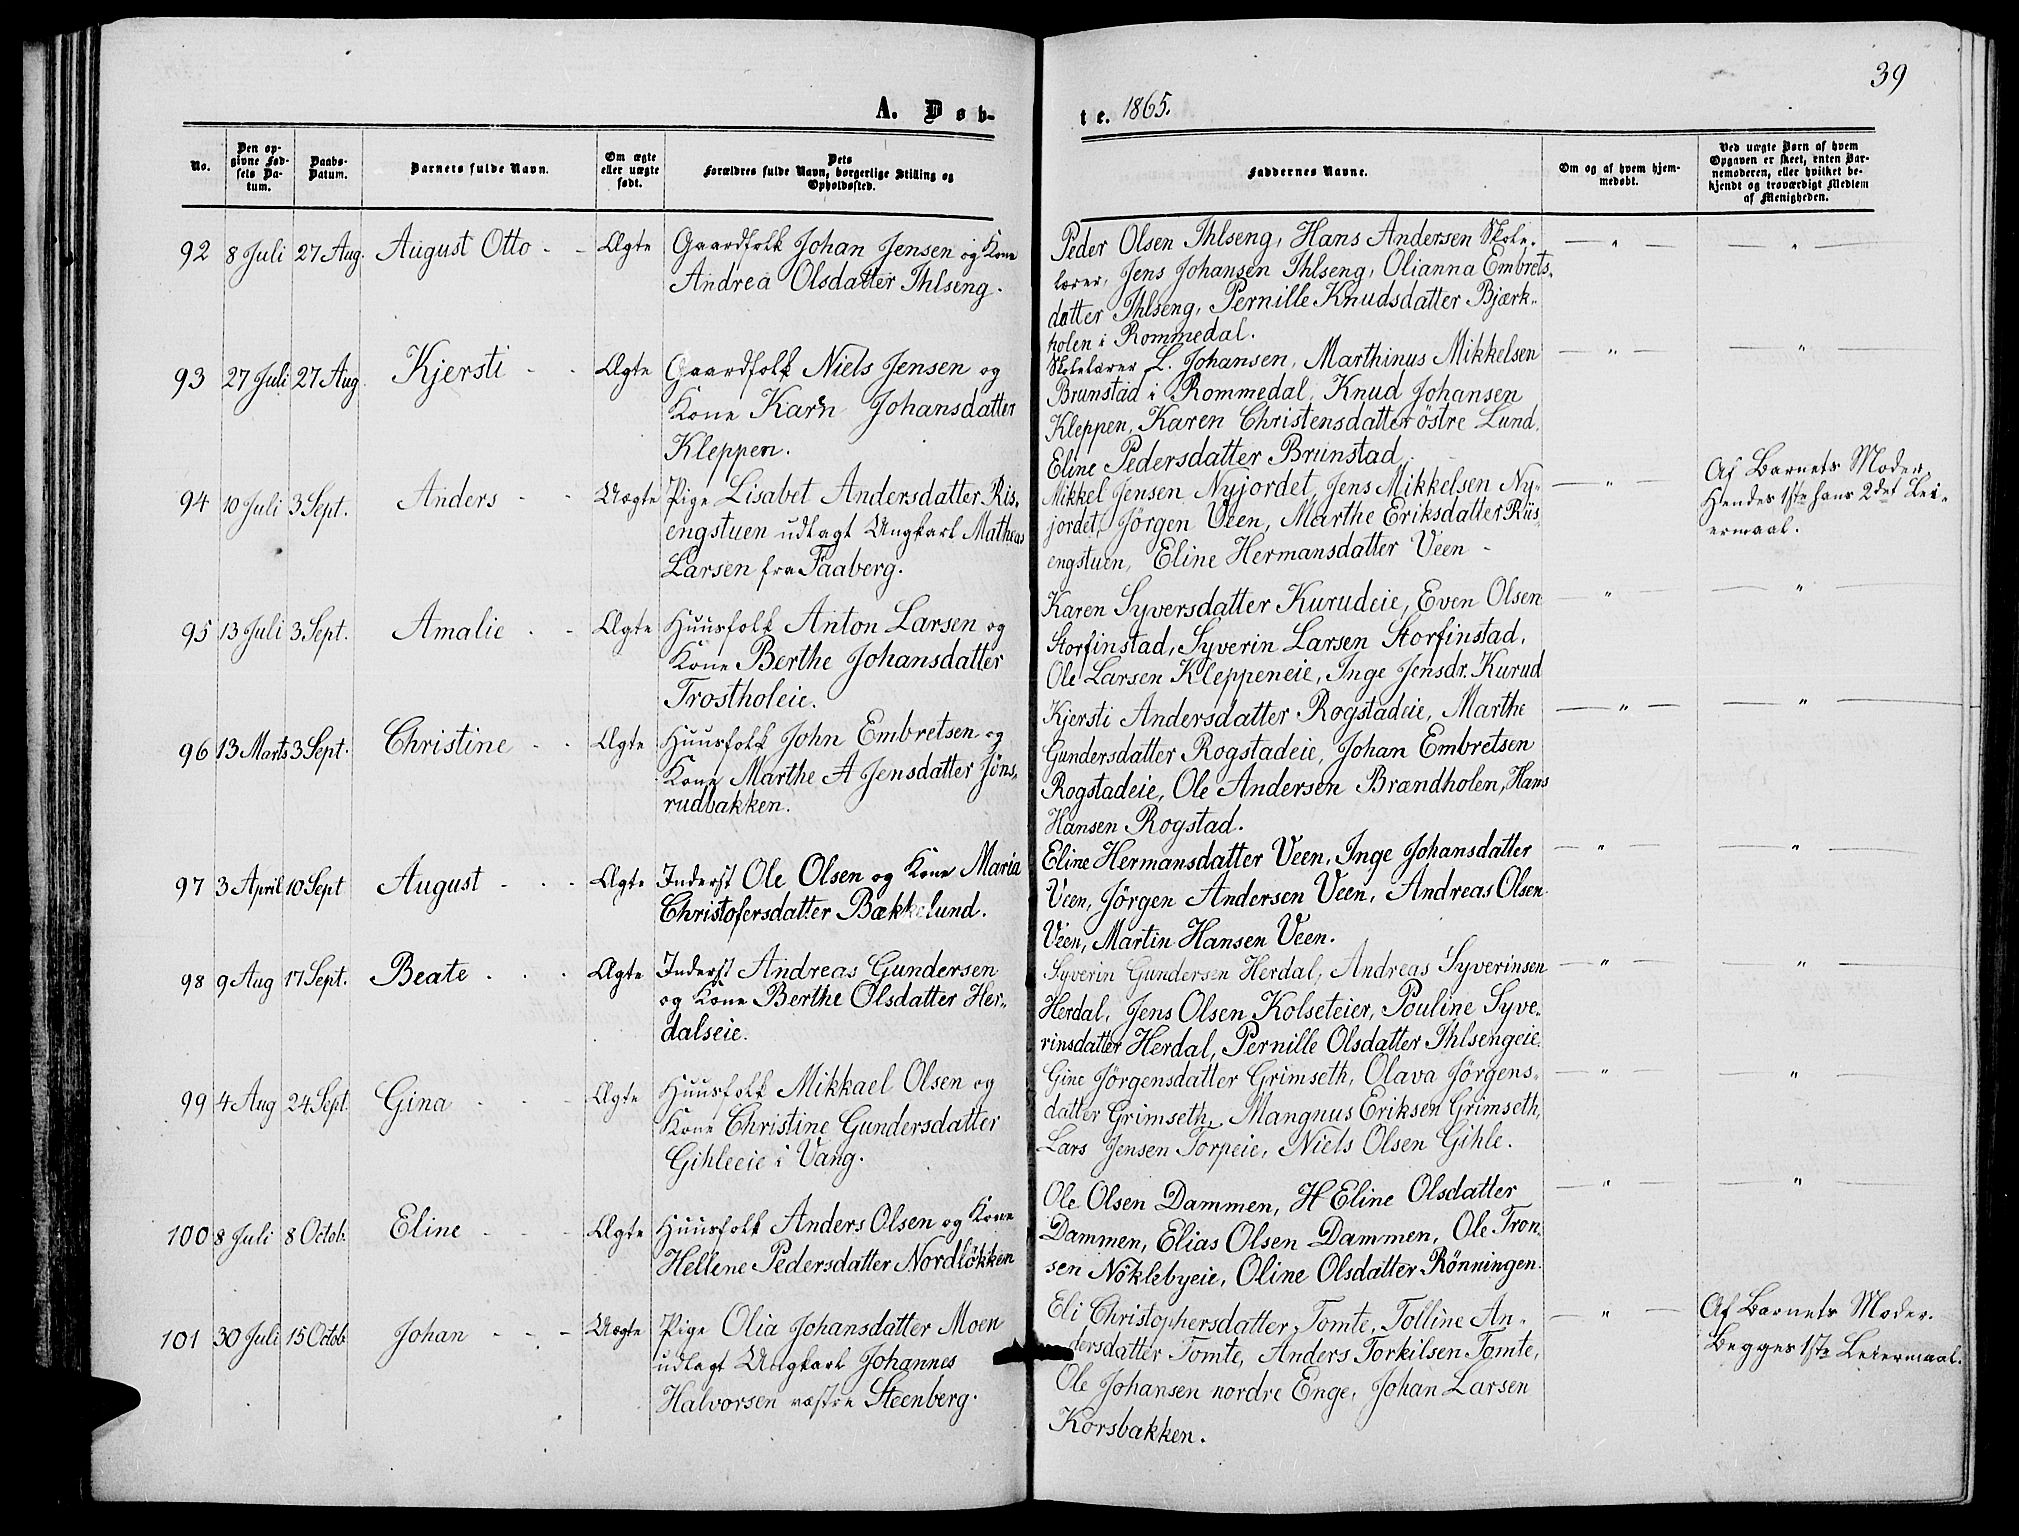 39
A. Døb-
te. 1865.
No.
Den op-
givne Fød-
sels Da-
tum.
Daabs-
Datum.
Barnets fulde Navn.
Om ægte
eller uægte
født.
Dets
Forældres fulde Navn, borgerlige Stilling og
Opholdssted.
Faddernes Navne.
Om og af hvem hjem-
medøbt.
Ved uægte Børn af hvem
Opgaven er skeet, enten Bar-
nemoderen, eller hvilket be-
kjendt og troværdigt Medlem
af Menigheden.
92 8 Juli 27 Aug. August Otto - - Ægte
Gaardfolk Johan Jensen og Kone
Andrea Olsdatter Ihlseng.
Peder Olsen Ihlseng, Hans Andersen Skole-
lærer, Jens Johansen Ihlseng, Olianna Embrets-
datter Ihlseng, Pernille Knudsdatter Bjærk-
holen i Rommedal.
93 27 Juli 27 Aug. Kjersti - - Ægte
Gaardfolk Niels Jensen og
Kone Karn Johansdatter
Kleppen.
Skolelærer L. Johansen, Marthinus Mikkelsen
Brunstad i Rommedal, Knud Johansen
Kleppen, Karen Christensdatter östre Lund,
Eline Pedersdatter Brunstad
94 10 Juli 3 Sept. Anders - - Uægte
Pige Lisabet Andersdatter Ris-
engstuen udlagt Ungkarl Matheas
Larsen fra Faaberg.
Mikkel Jensen Nyjordet, Jens Mikkelsen Ny-
jordet, Jörgen Veen, Marthe Eriksdatter Riis-
engstuen, Eline Hermansdatter Veen -
Af Barnets Moder.
Hendes 1ste hans 2det Lei-
ermaal.
95 13 Juli 3 Sept. Amalie - - Ægte
Huusfolk Anton Larsen og
Kone Berthe Johansdatter
Trostholeie.
Karen Syversdatter Kurudeie, Even Olsen
Storfinstad, Syverin Larsen Storfinstad,
Ole Larsen Kleppeneie, Inge Jensdr. Kurud
96 13 Marts 3 Sept. Christine - - Ægte
Huusfolk John Embretsen og
Kone Marthe A Jensdatter Jöns-
rudbakken.
Kjersti Andersdatter Rogstadeie, Marthe
Gundersdatter Rogstadeie, Johan Embretsen
Rogstadeie, Ole Andersen Brandholen, Hans
Hansen Rogstad.
97 3 April 10 Sept August - - - Ægte
Inderst Ole Olsen og Kone Maria
Christofersdatter Bækkelund.
Eline Hermansdatter Veen, Inge Johansdatter
Veen, Jörgen Andersen Veen, Andreas Olsen
Veen, Martin Hansen Veen.
98 9 Aug 17 Sept. Beate - - - Ægte
Inderst Andreas Gundersen
og Kone Berthe Olsdatter Her-
dalseie.
Syverin Gundersen Herdal, Andreas Syverinsen
Herdal, Jens Olsen Kolseteier, Pouline Syve-
rinsdatter Herdal, Pernille Olsdatter Ihlsengeie.
99 4 Aug 24 Sept. Gina - - - Ægte
Huusfolk Mikkael Olsen og
Kone Christine Gundersdatter
Gihleeie i Vang.
Gine Jörgensdatter Grimseth, Olava Jörgens-
datter Grimseth, Mangnus Eriksen Grimseth,
Lars Jensen Torpeie, Niels Olsen Gihle.
100 8 Juli 8 Octob. Eline - - - Ægte
Huusfolk Anders Olsen og Kone
Hellene Pedersdatter Nordlökken
Ole Olsen Dammen, H Eline Olsdatter
Dammen, Elias Olsen Dammen, Ole Tron-
sen Nöklebyeie, Oline Olsdatter Rönningen.
101 30 Juli 15 Octob Johan - - - Uægte
Pige Olia Johansdatter Moen
udlagt Ungkarl Johannes
Halvorsen væstre Steenberg.
Eli Christophersdatter Tomte, Tolline An-
dersdatter Tomte, Anders Torkilsen Tomte,
Ole Johansen nordre Enge, Johan Larsen
Korsbakken.
Af Barnets Moder.
Begges 1ste Leiermaal.